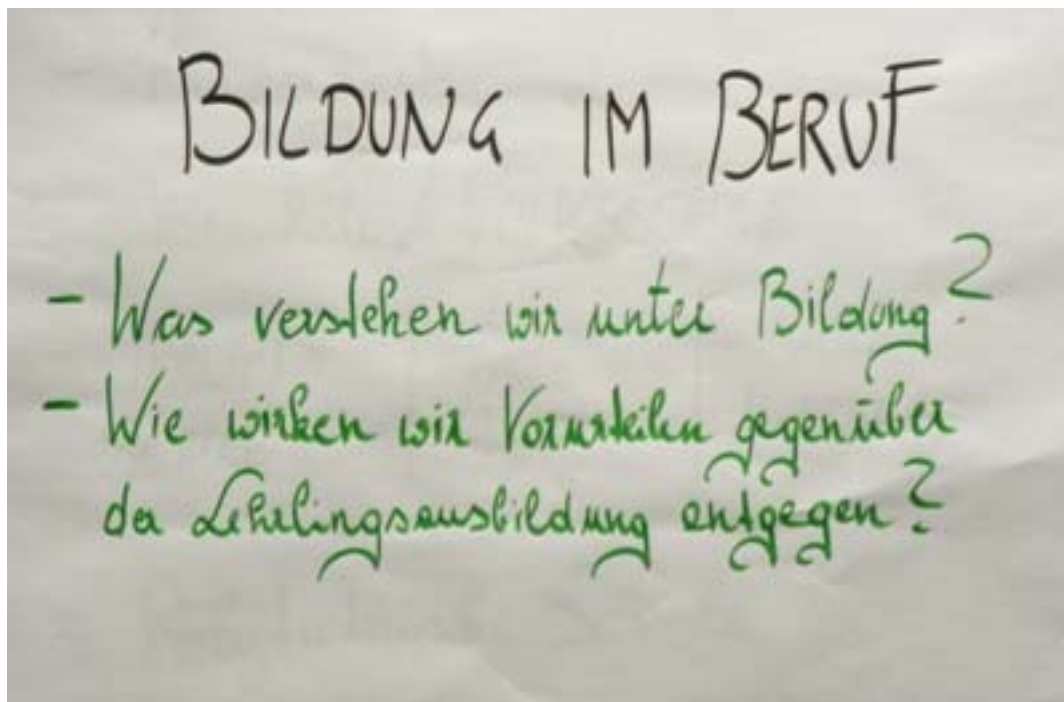 BILDUNG IM BERUF
- Was verstehen wir unter Bildung?
- Wie wirken wir Vorurteilen gegenüber
der Lehrlingsausbildung entgegen?